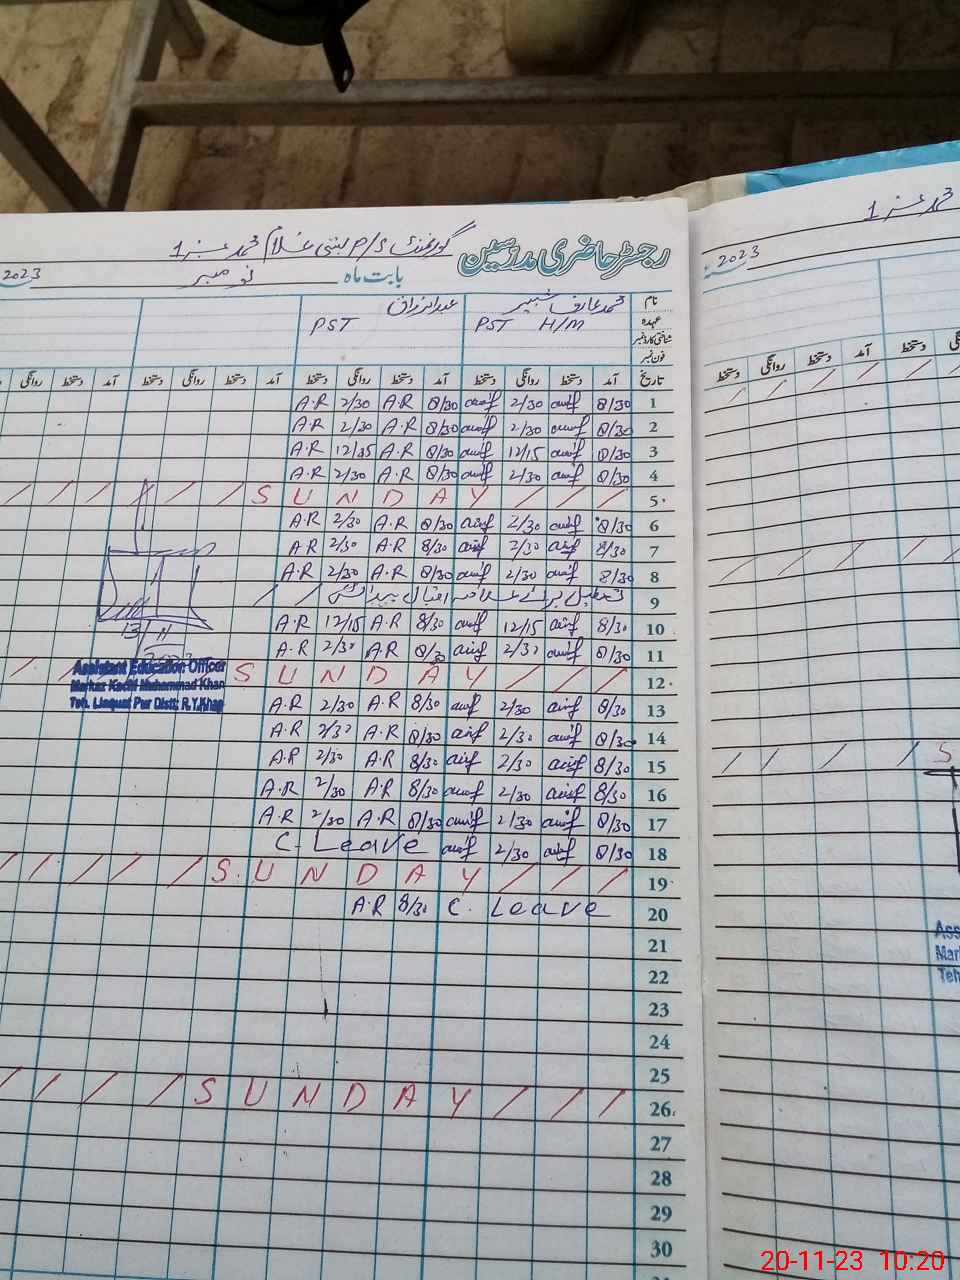 رجسٹر حاضری مدرسین گورنمنٹ P/S بستی غلام محمد نمبر 1
بابت ماہ نومبر 2023
نام محمد عارف شبیر عبدالرزاق
عہدہ PST H/M PST
شناختی کارڈ نمبر
فون نمبر
تاریخ آمد دستخط روانگی دستخط آمد دستخط روانگی دستخط آمد دستخط روانگی دستخط آمد دستخط روانگی
1 8/30 arif 2/30 arif 8/30 A.R 2/30 A.R
2 8/30 arif 2/30 arif 8/30 A.R 2/30 A.R
3 8/30 arif 12/15 arif 8/30 A.R 12/15 A.R
4 8/30 arif 2/30 arif 8/30 A.R 2/30 A.R
5 SUNDAY
6 8/30 arif 2/30 arif 8/30 A.R 2/30 A.R
7 8/30 arif 2/30 arif 8/30 A.R 2/30 A.R
8 8/30 arif 2/30 arif 8/30 A.R 2/30 A.R
9 تعطیل علامہ اقبال
10 8/30 arif 12/15 arif 8/30 A.R 12/15 A.R
11 8/30 arif 2/30 arif 8/30 A.R 2/30 A.R
12 SUNDAY
13 8/30 arif 2/30 arif 8/30 A.R 2/30 A.R
14 8/30 arif 2/30 arif 8/30 A.R 2/30 A.R
15 8/30 arif 2/30 arif 8/30 A.R 2/30 A.R
16 8/30 arif 2/30 arif 8/30 A.R 2/30 A.R
17 8/30 arif 2/30 arif 8/30 A.R 2/30 A.R
18 8/30 arif 2/30 arif C. Leave
19 SUNDAY
20 C. Leave 8/30 A.R
21
22
23
24
25
26 SUNDAY
27
28
29
30
13/11
2023
Assistant Education Officer
Markaz Kachi Muhammad Khan
Teh. Liaquat Pur Distt; R.Y.Khan
محمد نمبر 1
2023
دستخط روانگی دستخط آمد دستخط
S
Ass
Mar
Teh
20-11-23 10:20